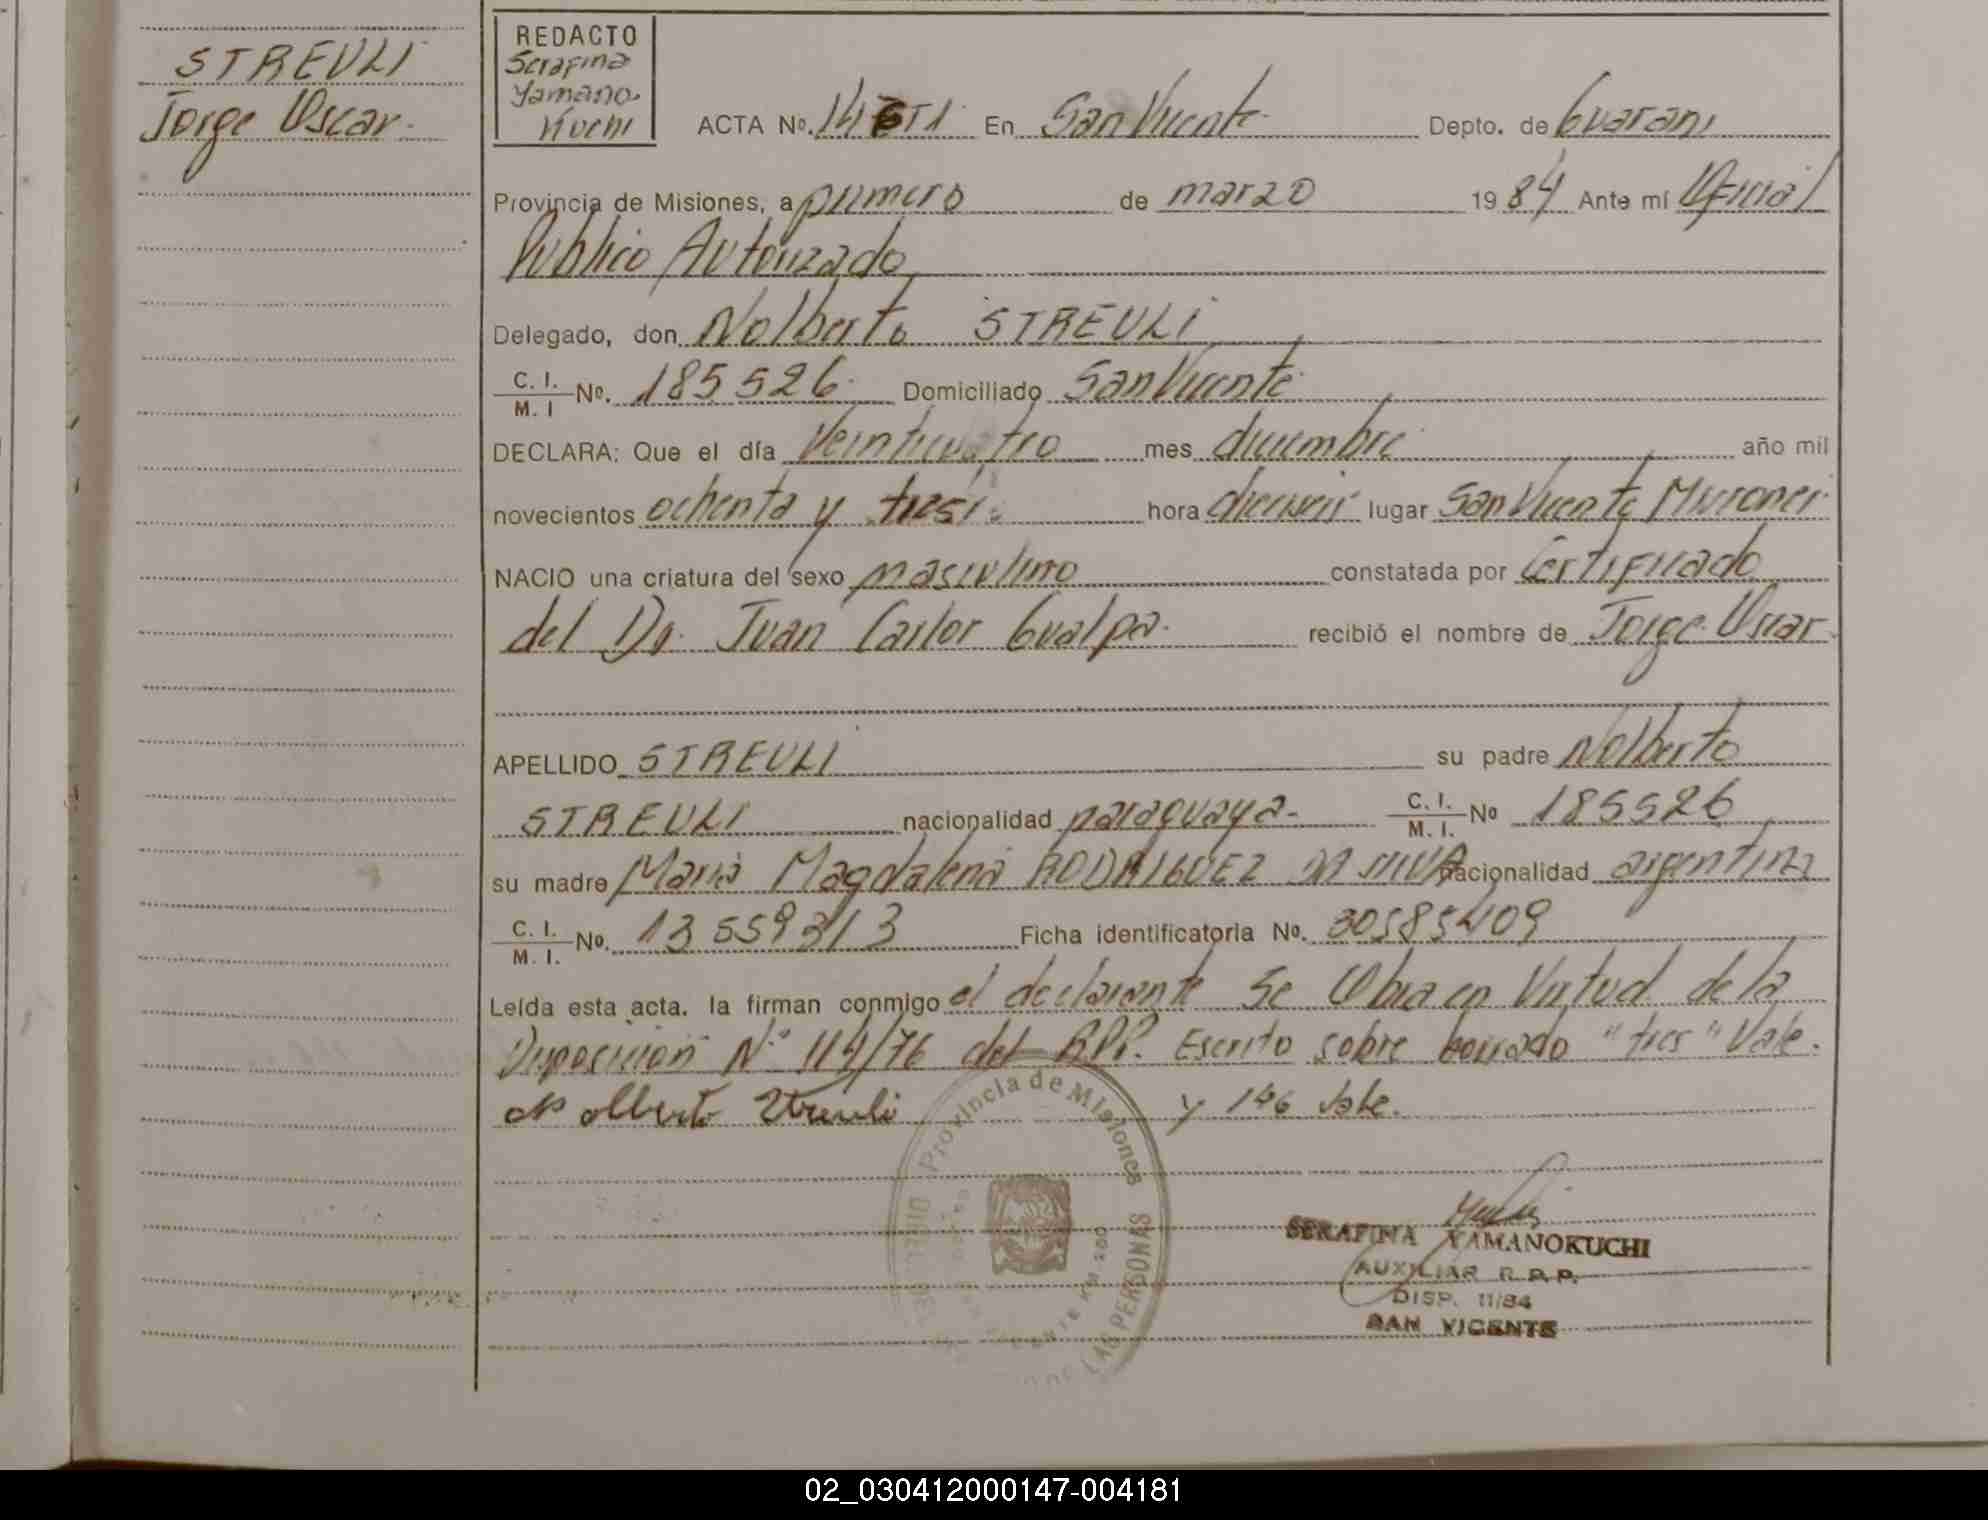 STREULI
Jorge Oscar.
REDACTO
Serafina
Yamano-
Kuchi
ACTA Nº. 146 T1 En San Vicente Depto. de Guarani
Provincia de Misiones, a primero de marzo 1984 Ante mí Oficial
Publico Autorizado
Delegado, don Nolberto STREULI
C. I. / M. I Nº. 185526 Domiciliado San Vicente
DECLARA: Que el día Veinticuatro mes diciembre año mil
novecientos ochenta y tres hora dieciseis lugar San Vicente Misiones
NACIO una criatura del sexo masculino constatada por Certificado
del Dr. Juan Carlos Gualpa. recibió el nombre de Jorge Oscar
APELLIDO STREULI su padre Nolberto
STREULI nacionalidad paraguaya- C. I. / M. I. Nº 185526
su madre Maria Magdalena RODRIGUEZ DA SILVA nacionalidad argentina
C. I. / M. I. Nº. 13559313 Ficha identificatoria No. 30585409
Leída esta acta. la firman conmigo el declarante Se Obra en Virtud de la
Disposicion Nº 114/76 del R.P.P. Escrito sobre borrado "tres" Vale.
Nolberto Streuli y 146 Vale.
Provincia de Misiones
DE LAS PERSONAS
SERAFINA YAMANOKUCHI
AUXILIAR R.P.P.
DISP. 11/84
SAN VICENTE
02_030412000147-004181